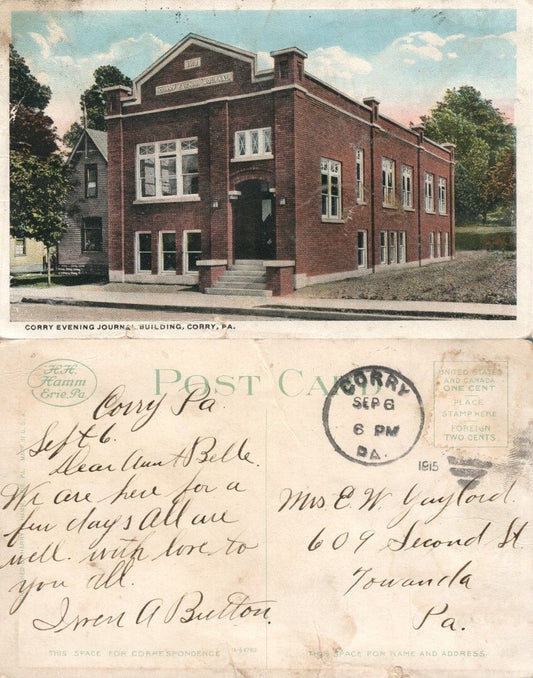 CORRY EVENING JOURNAL BUILDING, CORRY, PA.
H.H.
Hamm
Erie, Pa
POST CARD
CORRY
SEP 6
6 PM
PA.
1915
UNITED STATES
AND CANADA
ONE CENT
PLACE
STAMP HERE
FOREIGN
TWO CENTS.
Corry Pa.
Sept 6.
Dear Aunt Belle.
We are here for a
few days All are
well. with love to
you all.
A Button.
Mrs E. W. Gaylord.
609 Second St.
Towanda
Pa.
THIS SPACE FOR CORRESPONDENCE
THIS SPACE FOR NAME AND ADDRESS.